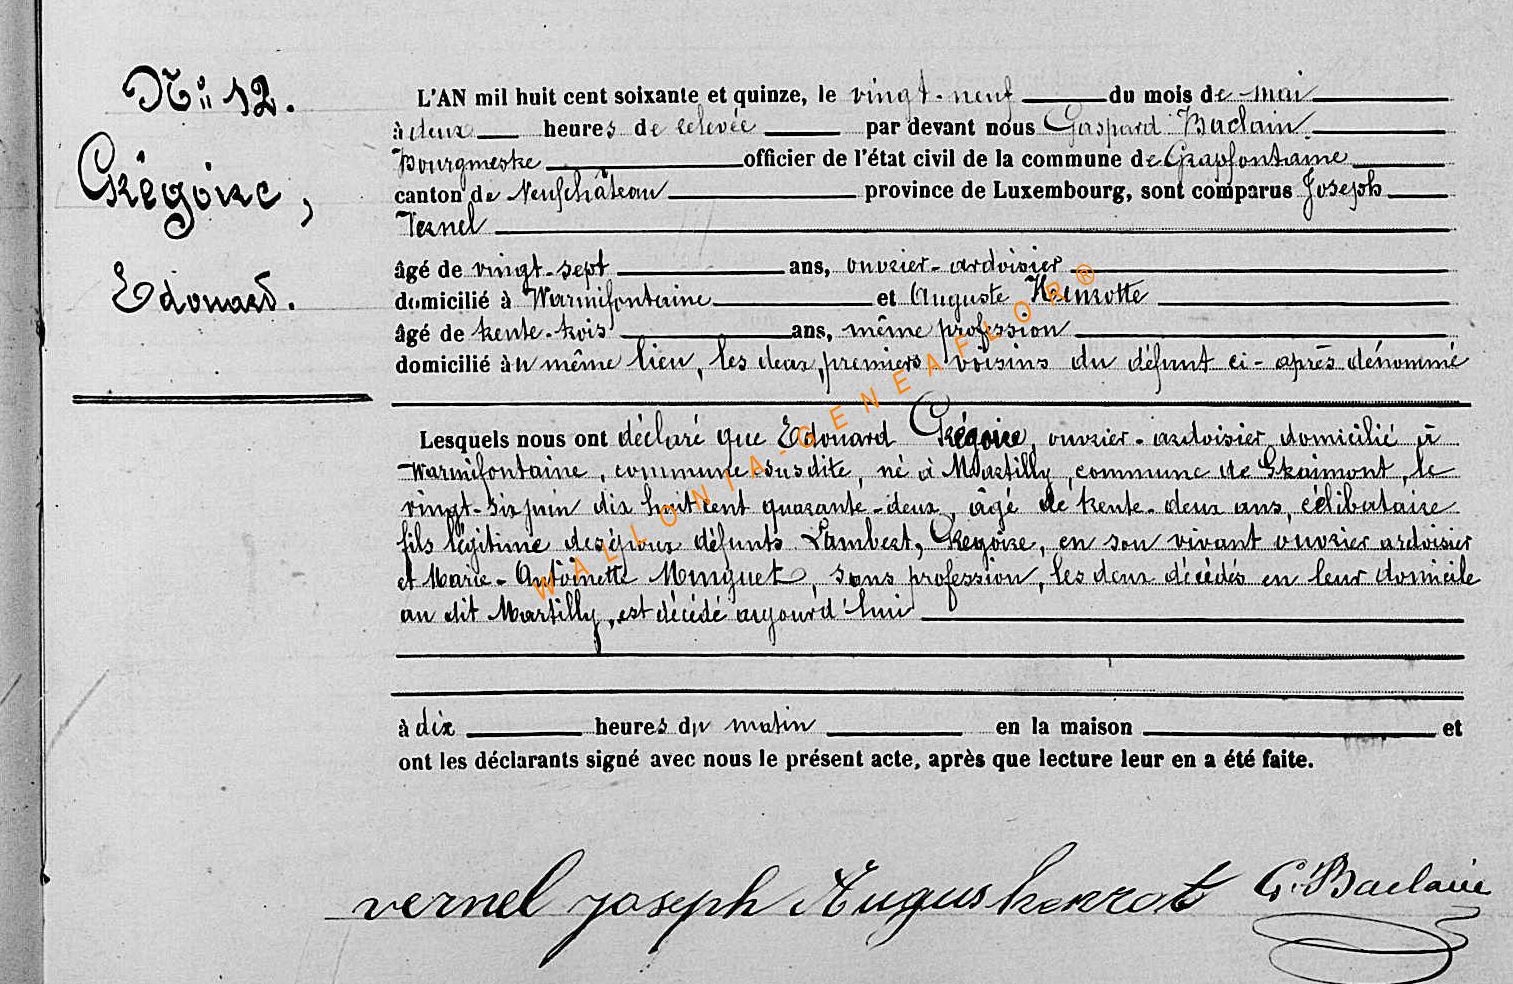 N° 12.
Grégoire,
Edouard.
L'AN mil huit cent soixante et quinze, le vingt-neuf du mois de mai
à deux heures de relevée par devant nous Gaspard Baclain
Bourgmestre officier de l'état civil de la commune de Grapfontaine
canton de Neufchâteau province de Luxembourg, sont comparus Joseph
Vernel
âgé de vingt-sept ans, ouvrier-ardoisier
domicilié à Warmifontaine et Auguste
âgé de trente-trois ans, même profession
domicilié au même lieu, les deux premiers voisins du défunt ci-après dénommé
Lesquels nous ont déclaré que Edouard Grégoire, ouvrier-ardoisier domicilié à
Warmifontaine, commune susdite, né à Martilly, commune de Straimont, le
vingt-six juin dix huit cent quarante-deux, âgé de trente-deux ans, célibataire
fils légitime des époux défunts Lambert, Grégoire, en son vivant ouvrier ardoisier
et Marie-Antoinette Minguet, sans profession, les deux décédés en leur domicile
au dit Martilly, est décédé aujourd'hui
à dix heures du matin en la maison et
ont les déclarants signé avec nous le présent acte, après que lecture leur en a été faite.
vernel joseph Augus G. Baclain
WALLONIA-GENEAFLOR®